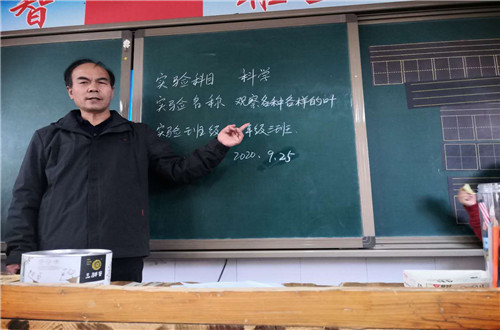 智
实验科目 科学
实验名称 观察各种各样的叶
实验班级 年级三班
2020.9.25